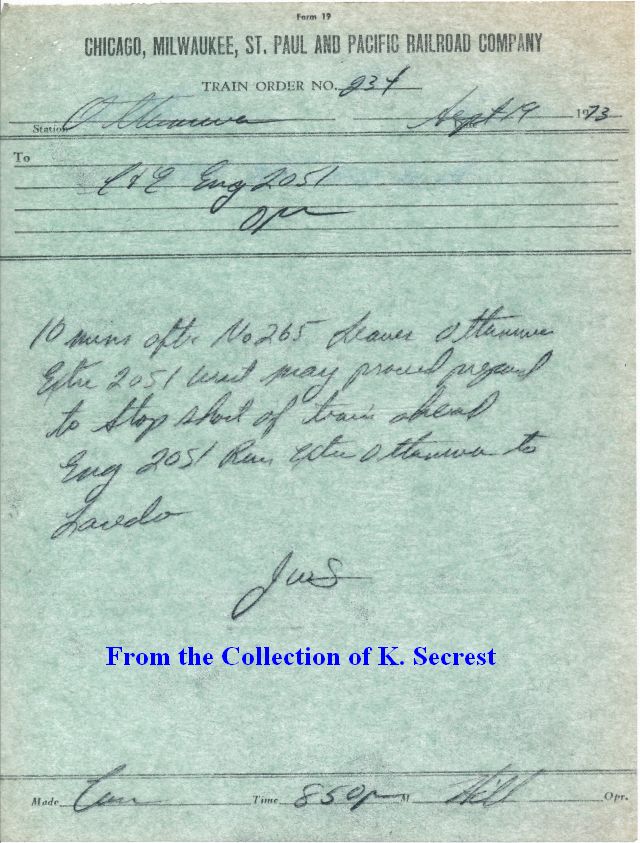 Form 19
CHICAGO, MILWAUKEE, ST. PAUL AND PACIFIC RAILROAD COMPANY
TRAIN ORDER NO. 234
Station Ottumwa Date Sept 19 1973
To
C & E Eng 2051
Opr
10 mins aftr No 265 Leaves Ottumwa
Extra 2051 West may proceed prepared
to stop short of train ahead
Eng 2051 Run Extra Ottumwa to
Laredo
JWS
From the Collection of K. Secrest
Made Com Time 850p M Hill Opr.